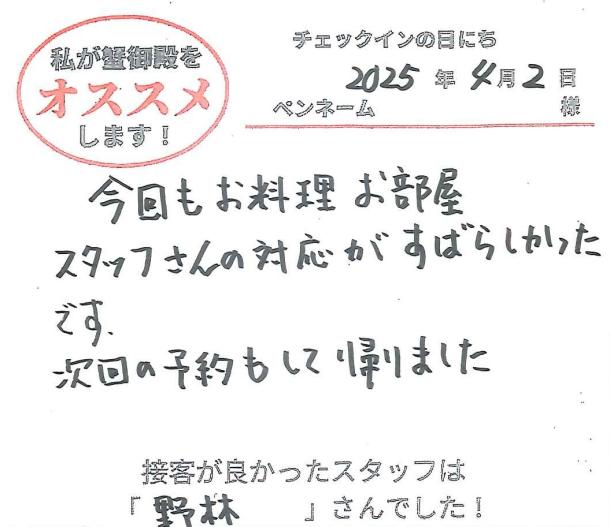 私が蟹御殿を
オススメ
します!
チェックインの日にち
2025年4月2日
ペンネーム 様
今回もお料理 お部屋
スタッフさんの対応がすばらしかった
です.
次回の予約もして帰りました
接客が良かったスタッフは
「野林 」さんでした!